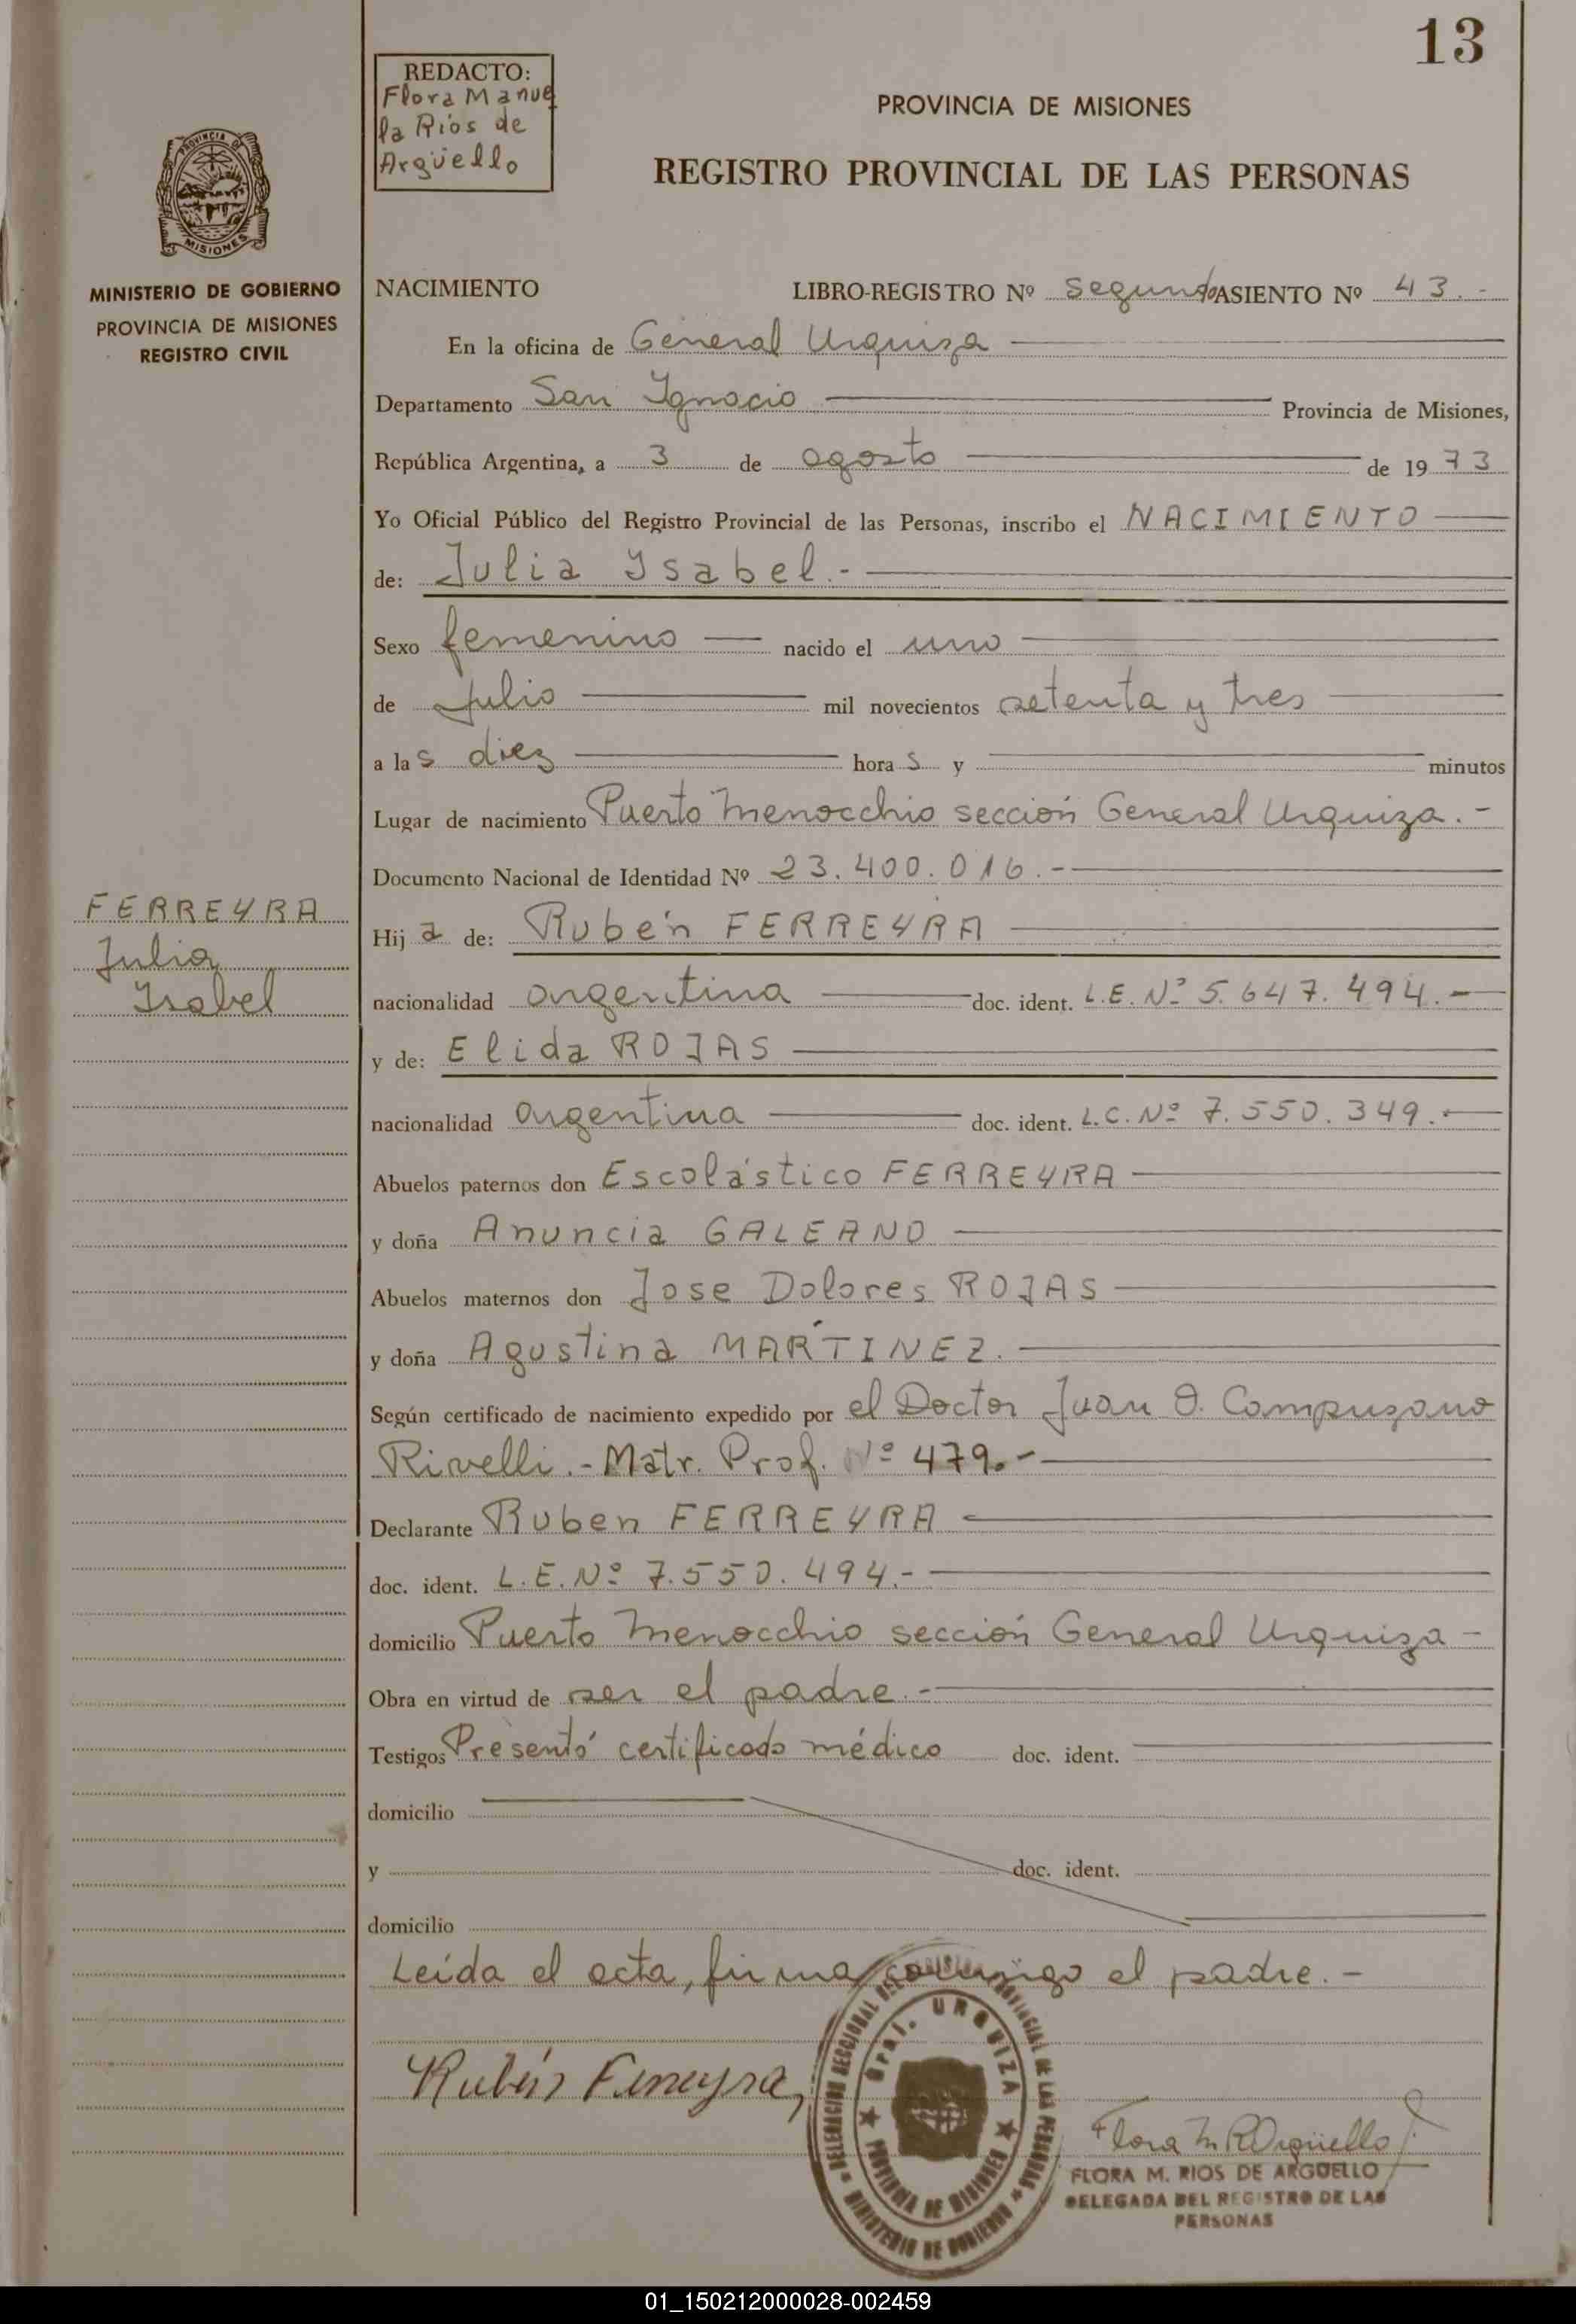 13
REDACTO:
Flora Manue
la Ríos de
Argüello
PROVINCIA DE MISIONES
REGISTRO PROVINCIAL DE LAS PERSONAS
PROVINCIA DE
MISIONES
MINISTERIO DE GOBIERNO
PROVINCIA DE MISIONES
REGISTRO CIVIL
NACIMIENTO LIBRO-REGISTRO Nº Segundo ASIENTO Nº 43.-
En la oficina de General Urquiza
Departamento San Ignacio Provincia de Misiones,
República Argentina, a 3 de agosto de 1973
Yo Oficial Público del Registro Provincial de las Personas, inscribo el NACIMIENTO
de: Julia Isabel.-
Sexo femenino nacido el uno
de Julio mil novecientos setenta y tres
a las diez horas y minutos
Lugar de nacimiento Puerto Menocchio sección General Urquiza.-
Documento Nacional de Identidad Nº 23.400.016.-
FERREYRA
Julia
Isabel
Hija de: Rubén FERREYRA
nacionalidad argentina doc. ident. L.E. Nº 5.647.494.-
y de: Elida ROJAS
nacionalidad argentina doc. ident. L.C. Nº 7.550.349.-
Abuelos paternos don Escolástico FERREYRA
y doña Anuncia GALEANO
Abuelos maternos don Jose Dolores ROJAS
y doña Agustina MARTÍNEZ.
Según certificado de nacimiento expedido por el Doctor Juan O. Campuzano
Rivelli.- Matr. Prof. Nº 479.-
Declarante Ruben FERREYRA
doc. ident. L.E. Nº 7.550.494.-
domicilio Puerto Menocchio sección General Urquiza -
Obra en virtud de ser el padre.-
Testigos Presentó certificado médico doc. ident.
domicilio
y doc. ident.
domicilio
Leída el acta, firma conmigo el padre.-
Rubén Ferreyra
Gral. URQUIZA
PROVINCIA DE MISIONES
MINISTERIO DE GOBIERNO
Flora M. R. Argüello
FLORA M. RIOS DE ARGÜELLO
DELEGADA DEL REGISTRO DE LAS
PERSONAS
01_150212000028-002459